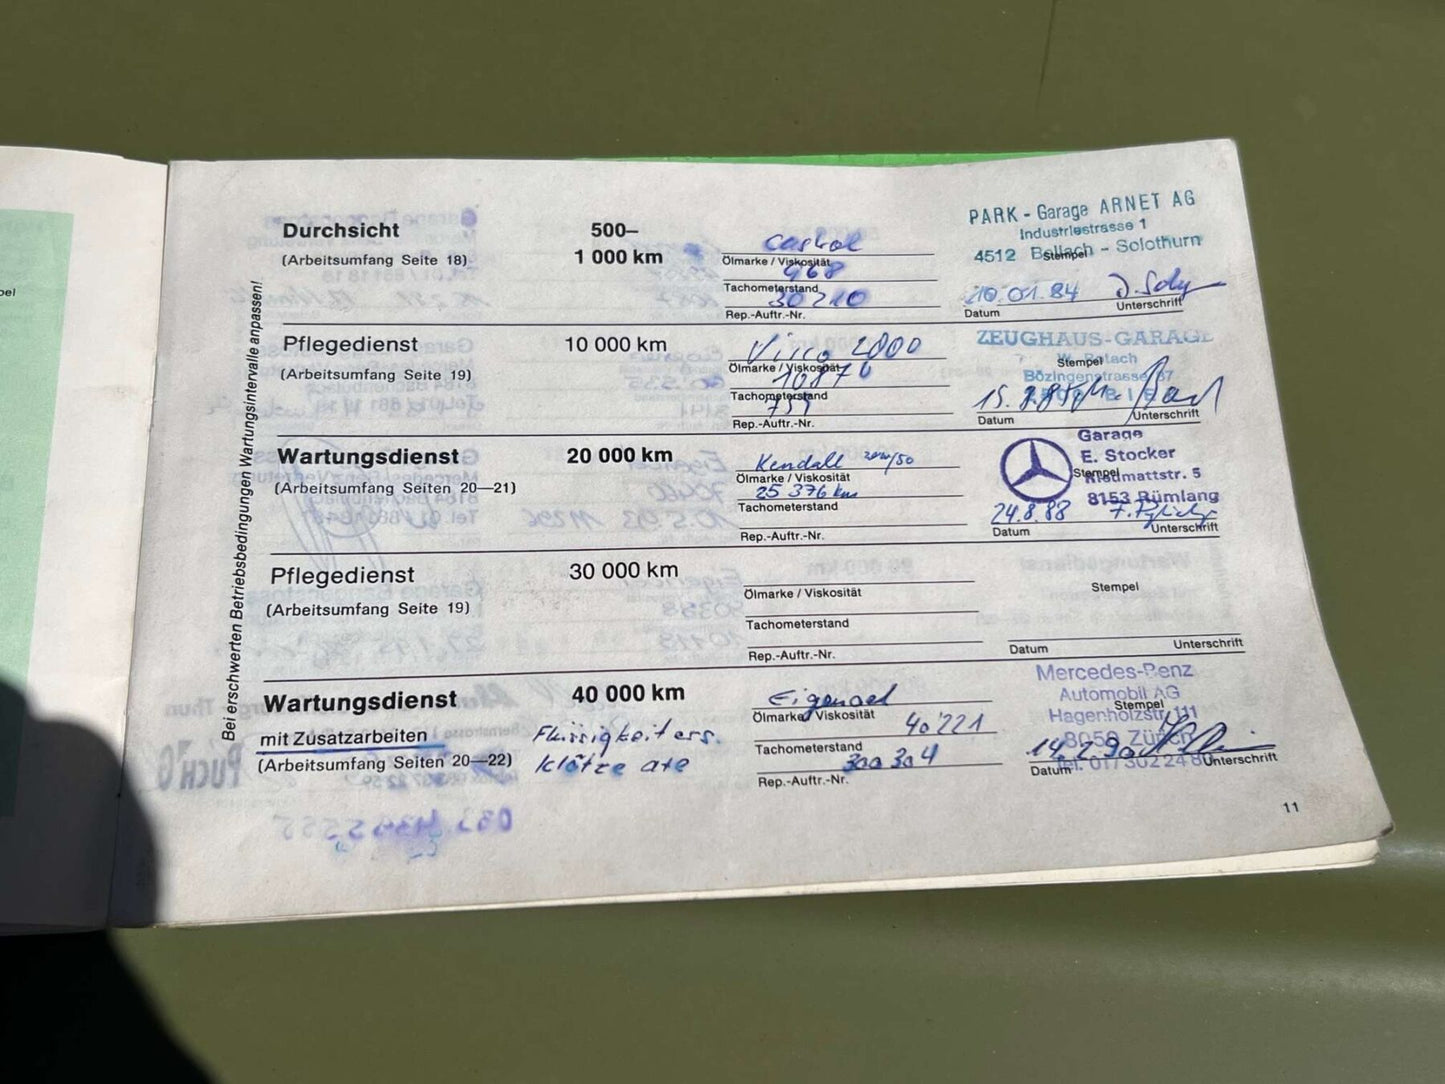 Bei erschwerten Betriebsbedingungen Wartungsintervalle anpassen!
Durchsicht
(Arbeitsumfang Seite 18)
500–
1 000 km
Castrol
Ölmarke / Viskosität
968
Tachometerstand
30210
Rep.-Auftr.-Nr.
PARK - Garage ARNET AG
Industriestrasse 1
4512 Bellach - Solothurn
Stempel
20.01.84
Datum
Unterschrift
Pflegedienst
(Arbeitsumfang Seite 19)
10 000 km
Visco 2000
Ölmarke / Viskosität
10876
Tachometerstand
Rep.-Auftr.-Nr.
ZEUGHAUS-GARAGE
Stempel
Bözingenstrasse
Datum
Unterschrift
Wartungsdienst
(Arbeitsumfang Seiten 20—21)
20 000 km
Kendall
Ölmarke / Viskosität
25 376 km
Tachometerstand
Rep.-Auftr.-Nr.
Garage
E. Stocker
Stempel
Riedmattstr. 5
8153 Rümlang
24.8.88
Datum
Unterschrift
Pflegedienst
(Arbeitsumfang Seite 19)
30 000 km
Ölmarke / Viskosität
Tachometerstand
Rep.-Auftr.-Nr.
Stempel
Datum
Unterschrift
Wartungsdienst
mit Zusatzarbeiten
(Arbeitsumfang Seiten 20—22)
40 000 km
Flüssigkeiters.
Klötze
Eigenoel
Ölmarke / Viskosität
40'221
Tachometerstand
300 304
Rep.-Auftr.-Nr.
Mercedes-Benz
Automobil AG
Stempel
Hagenholzstr. 111
8050 Zürich
14.2.90
Tel. 01/302 24 8
Datum
Unterschrift
11